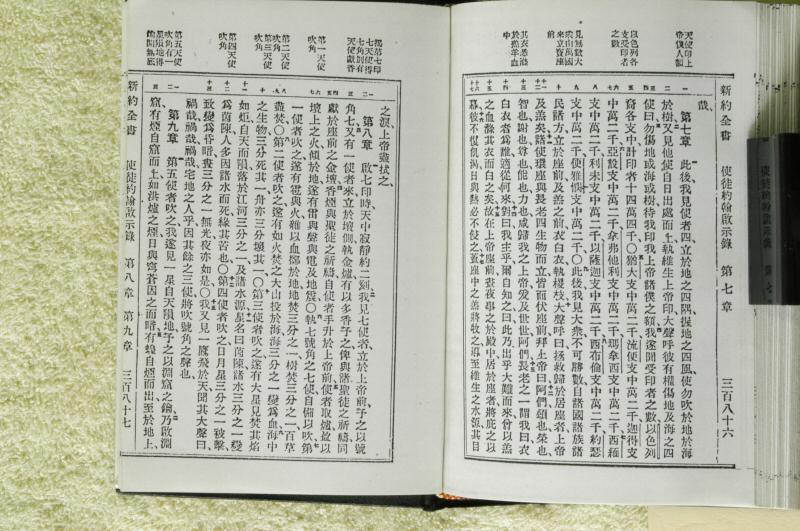 天使印上帝僕人額
以色列各支受印者之數
見無數大衆由萬國來立寶座前
其衣悉滌於羔羊血
新約全書 使徒約翰啟示錄 第七章 三百八十六
哉、
第七章 此後我見使者四立於地之四隅握地之四風使勿吹於地於海
於樹又見他使自日出處而上執維生上帝印大聲呼彼有權傷地及海之四
使曰勿傷地或海或樹待我印我上帝諸僕之額我遂聞受印者之數以色列
裔各支中計印者十四萬四千〇猶大支中萬二千流便支中萬二千迦得支
中萬二千亞設支中萬二千拿弗他利支中萬二千瑪拿西支中萬二千西緬
支中萬二千利未支中萬二千以薩迦支中萬二千西布倫支中萬二千約瑟
支中萬二千便雅憫支中萬二千〇此後我見大衆不可勝數自諸國諸族諸
民諸方立於座前及羔之前衣白衣執椶枝大聲呼曰拯救歸於居座者上帝
及羔矣諸使環座與長老四生物而立皆面伏座前拜上帝曰阿們頌也榮也
智也謝也尊也能也力也咸歸我之上帝爰及世世阿們長老之一謂我曰衣
白衣者爲誰適從何來對曰我主乎爾自知之曰此乃出乎大難而來曾以羔
之血滌其衣而白之矣故在上帝座前晝夜事之於殿中居於座者將庇之以
幕彼不復飢渴日與熱必不侵之蓋座中之羔將牧之導至維生之水源其目
揭第七印
七天使得七角別有天使獻香
第一天使吹角
第二天使吹角
第三天使吹角
第四天使吹角
第五天使吹角有一星隕地得
之淚上帝盡拭之
第八章 啟七印時天中寂靜約二刻我見七使者立於上帝前予之以號
角七又有一使者來立於壇側執金爐有以多香予之俾與諸聖徒之祈禱同
獻於座前之金壇香煙與聖徒之祈禱自使者手升於上帝前使者取爐盈以
壇上之火傾於地遂有雷與聲與電及地震〇執七號角之七使自備以吹第
一使者吹之遂有雹與火雜以血擲於地地焚三分之一樹焚三分之一百草
盡焚〇第二使者吹之遂有如火焚之大山投於海海三分之一變爲血海中
之生物三分死其一舟亦三分壞其一〇第三使者吹之遂有大星見焚其焰
如炬自天而隕落於江河三分之一及諸水源星名曰茵陳諸水三分之一變
爲茵陳人多因諸水而死緣其苦也〇第四使者吹之日月星三分之一被擊
致變爲昏暗晝三分之一無光夜亦如是〇我又見一鷹飛於天聞其大聲曰
禍哉禍哉禍哉宅地之人乎因其餘之三使將吹號角之聲也
第九章 第五使者吹之我遂見一星自天隕地予之以淵窟之鑰乃啟淵
窟有煙自窟而上如洪爐之煙日與穹蒼因之而暗有蝗自煙而出至於地上、
新約全書 使徒約翰啟示錄 第八章 第九章 三百八十七